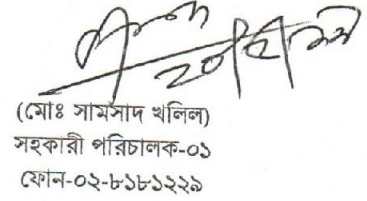 (মোঃ সামসাদ খলিল)
সহকারী পরিচালক-০১
ফোন-০২-৮১৮১২২৯